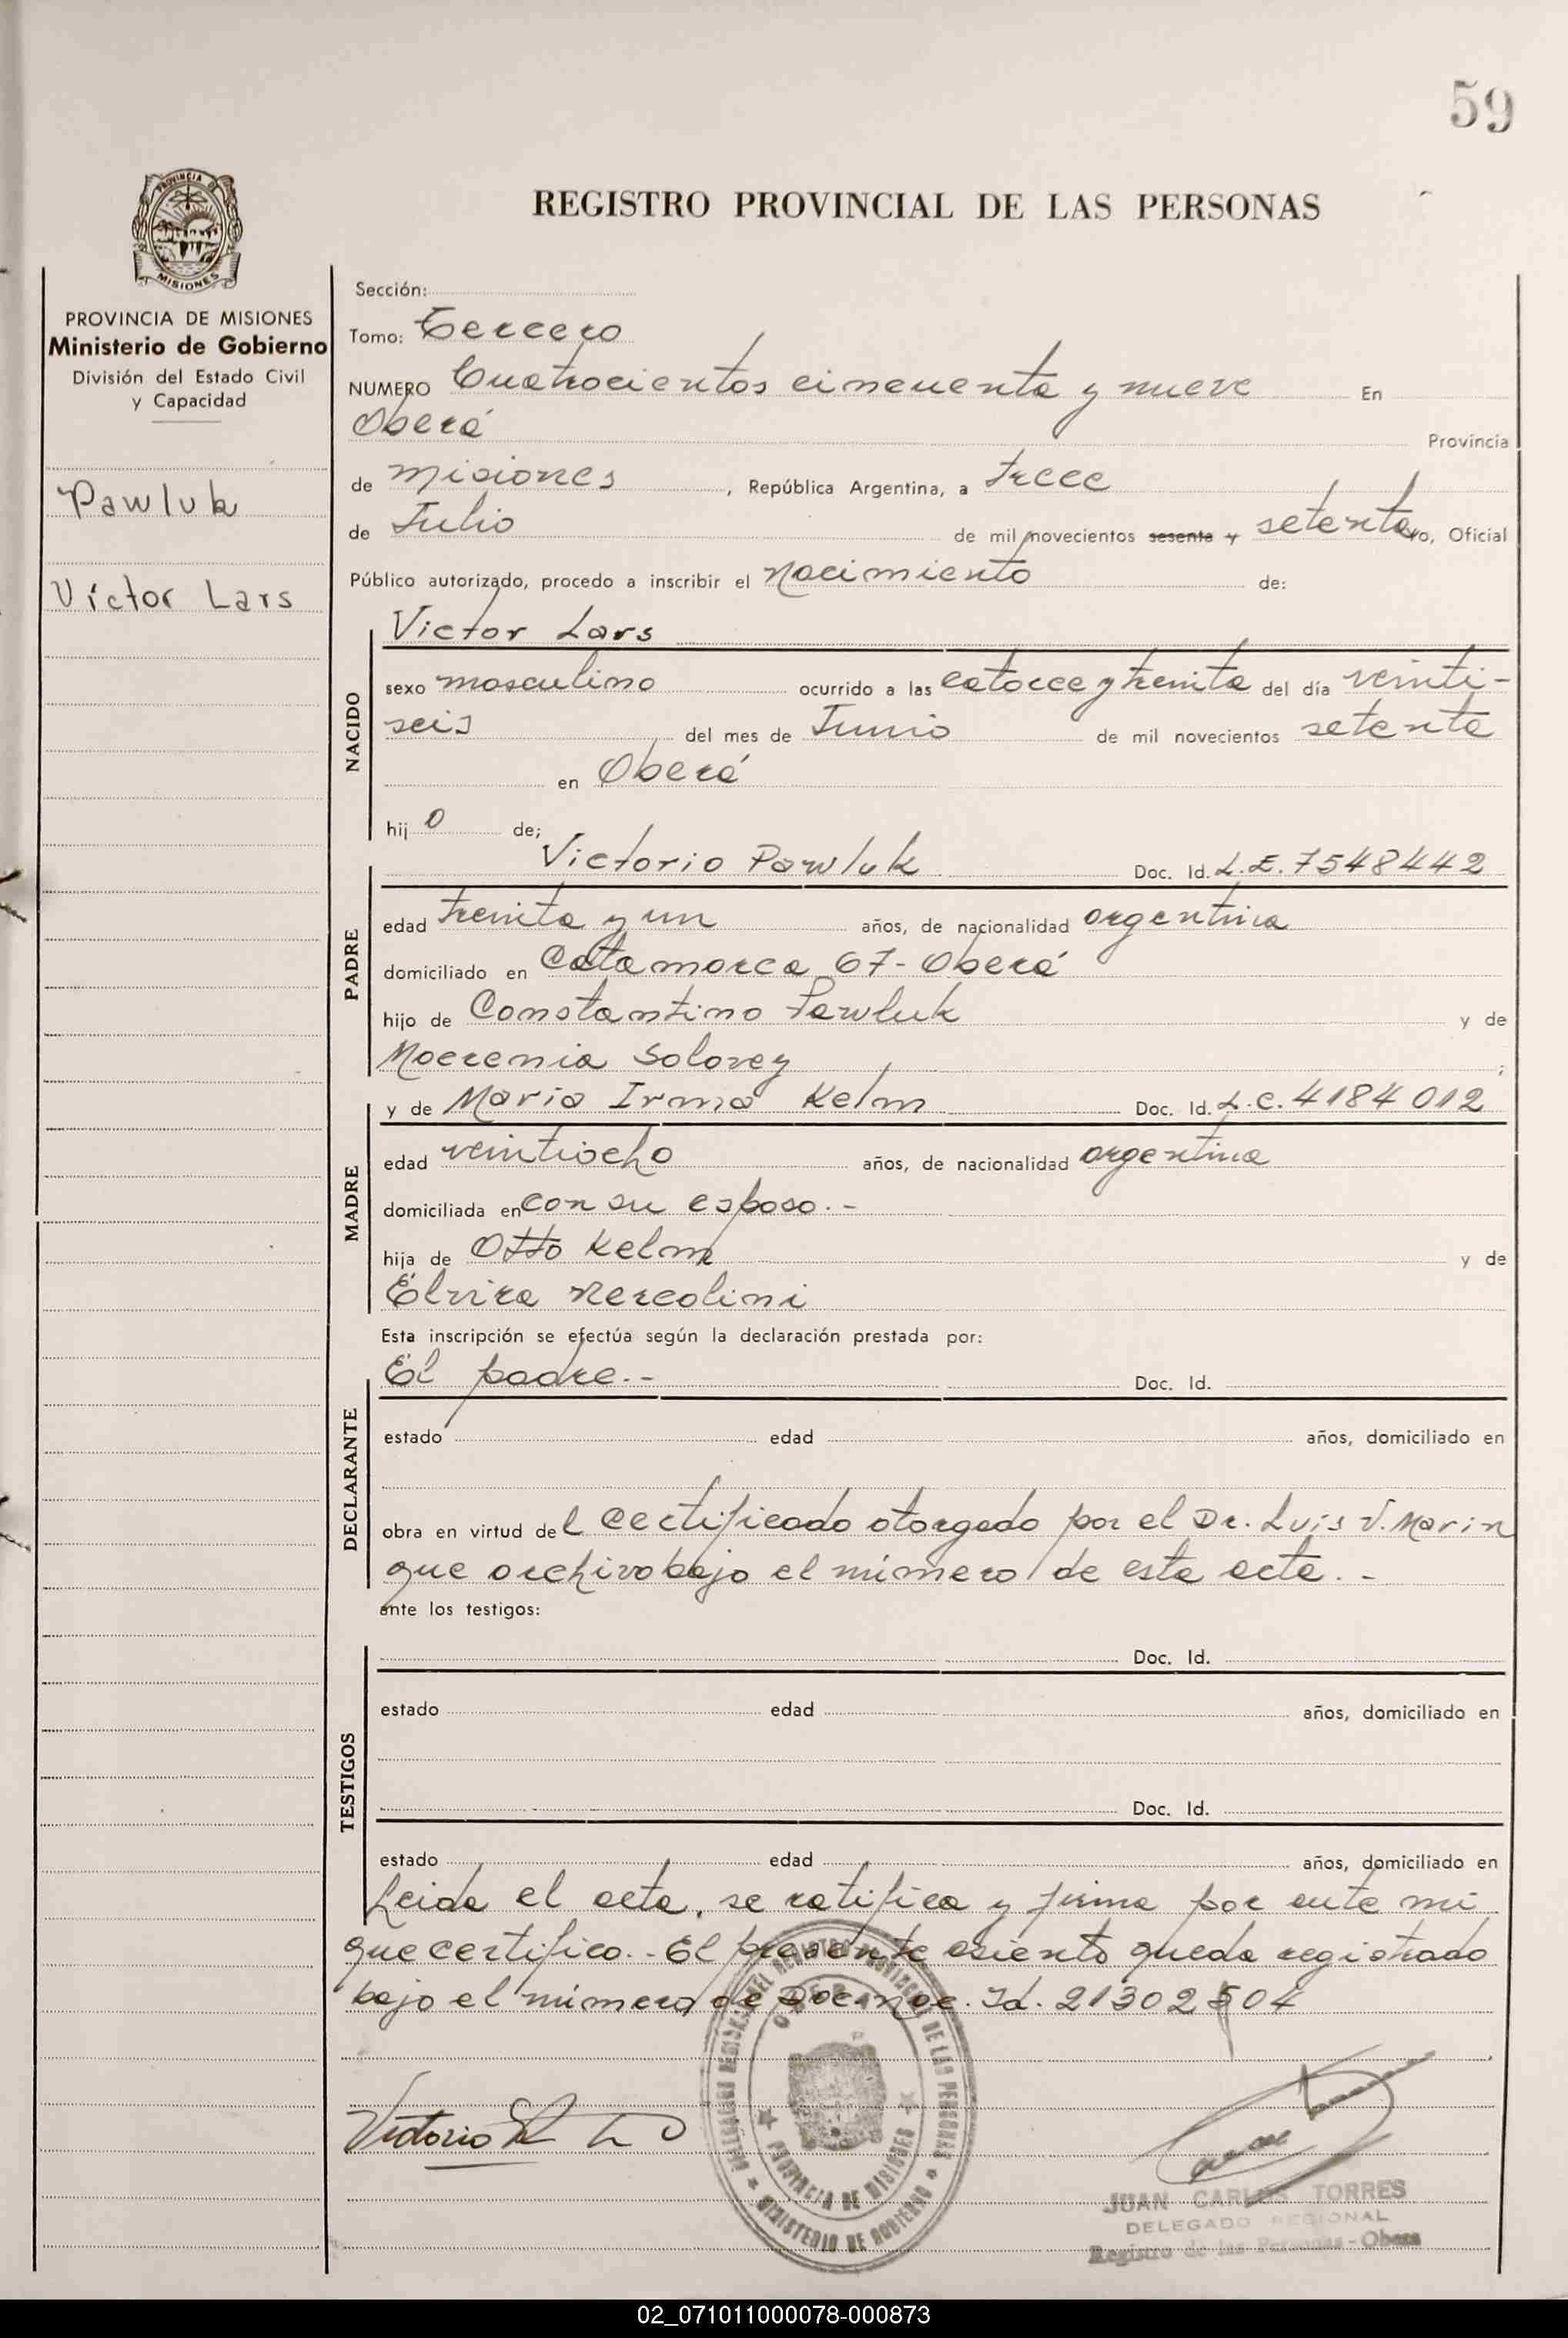 59
REGISTRO PROVINCIAL DE LAS PERSONAS
PROVINCIA DE MISIONES
Ministerio de Gobierno
División del Estado Civil
y Capacidad
Pawluk
Víctor Lars
Sección:
Tomo: Tercero
NUMERO Cuatrocientos cincuenta y nueve En
Oberá Provincia
de Misiones, República Argentina, a trece
de Julio de mil novecientos sesenta y setenta yo, Oficial
Público autorizado, procedo a inscribir el nacimiento de:
Victor Lars
NACIDO
sexo masculino ocurrido a las catorce y treinta del día veinti-
seis del mes de Junio de mil novecientos setenta
en Oberá
hijo de;
Victorio Pawluk Doc. Id. L.E. 7548442
PADRE
edad treinta y un años, de nacionalidad argentina
domiciliado en Catamarca 67 - Oberá
hijo de Constantino Pawluk y de
Solovey;
y de Maria Irma Kelm Doc. Id. L.C. 4184012
MADRE
edad veintiocho años, de nacionalidad argentina
domiciliada en con su esposo.-
hija de Otto Kelm y de
Elvira Nercolini
Esta inscripción se efectúa según la declaración prestada por:
El padre.- Doc. Id.
DECLARANTE
estado edad años, domiciliado en
obra en virtud del certificado otorgado por el Dr. Luis V. Marin
que archivo bajo el número de esta acta.-
ante los testigos:
Doc. Id.
TESTIGOS
estado edad años, domiciliado en
Doc. Id.
estado edad años, domiciliado en
Leida el acta, se ratifica y firma por ante mi
que certifico.- El presente asiento queda registrado
bajo el número de Doc. Nac. Id. 21302504
Victorio
PROVINCIA DE MISIONES
MINISTERIO DE GOBIERNO
JUAN CARLOS TORRES
DELEGADO REGIONAL
Registro de las Personas - Obera
02_071011000078-000873